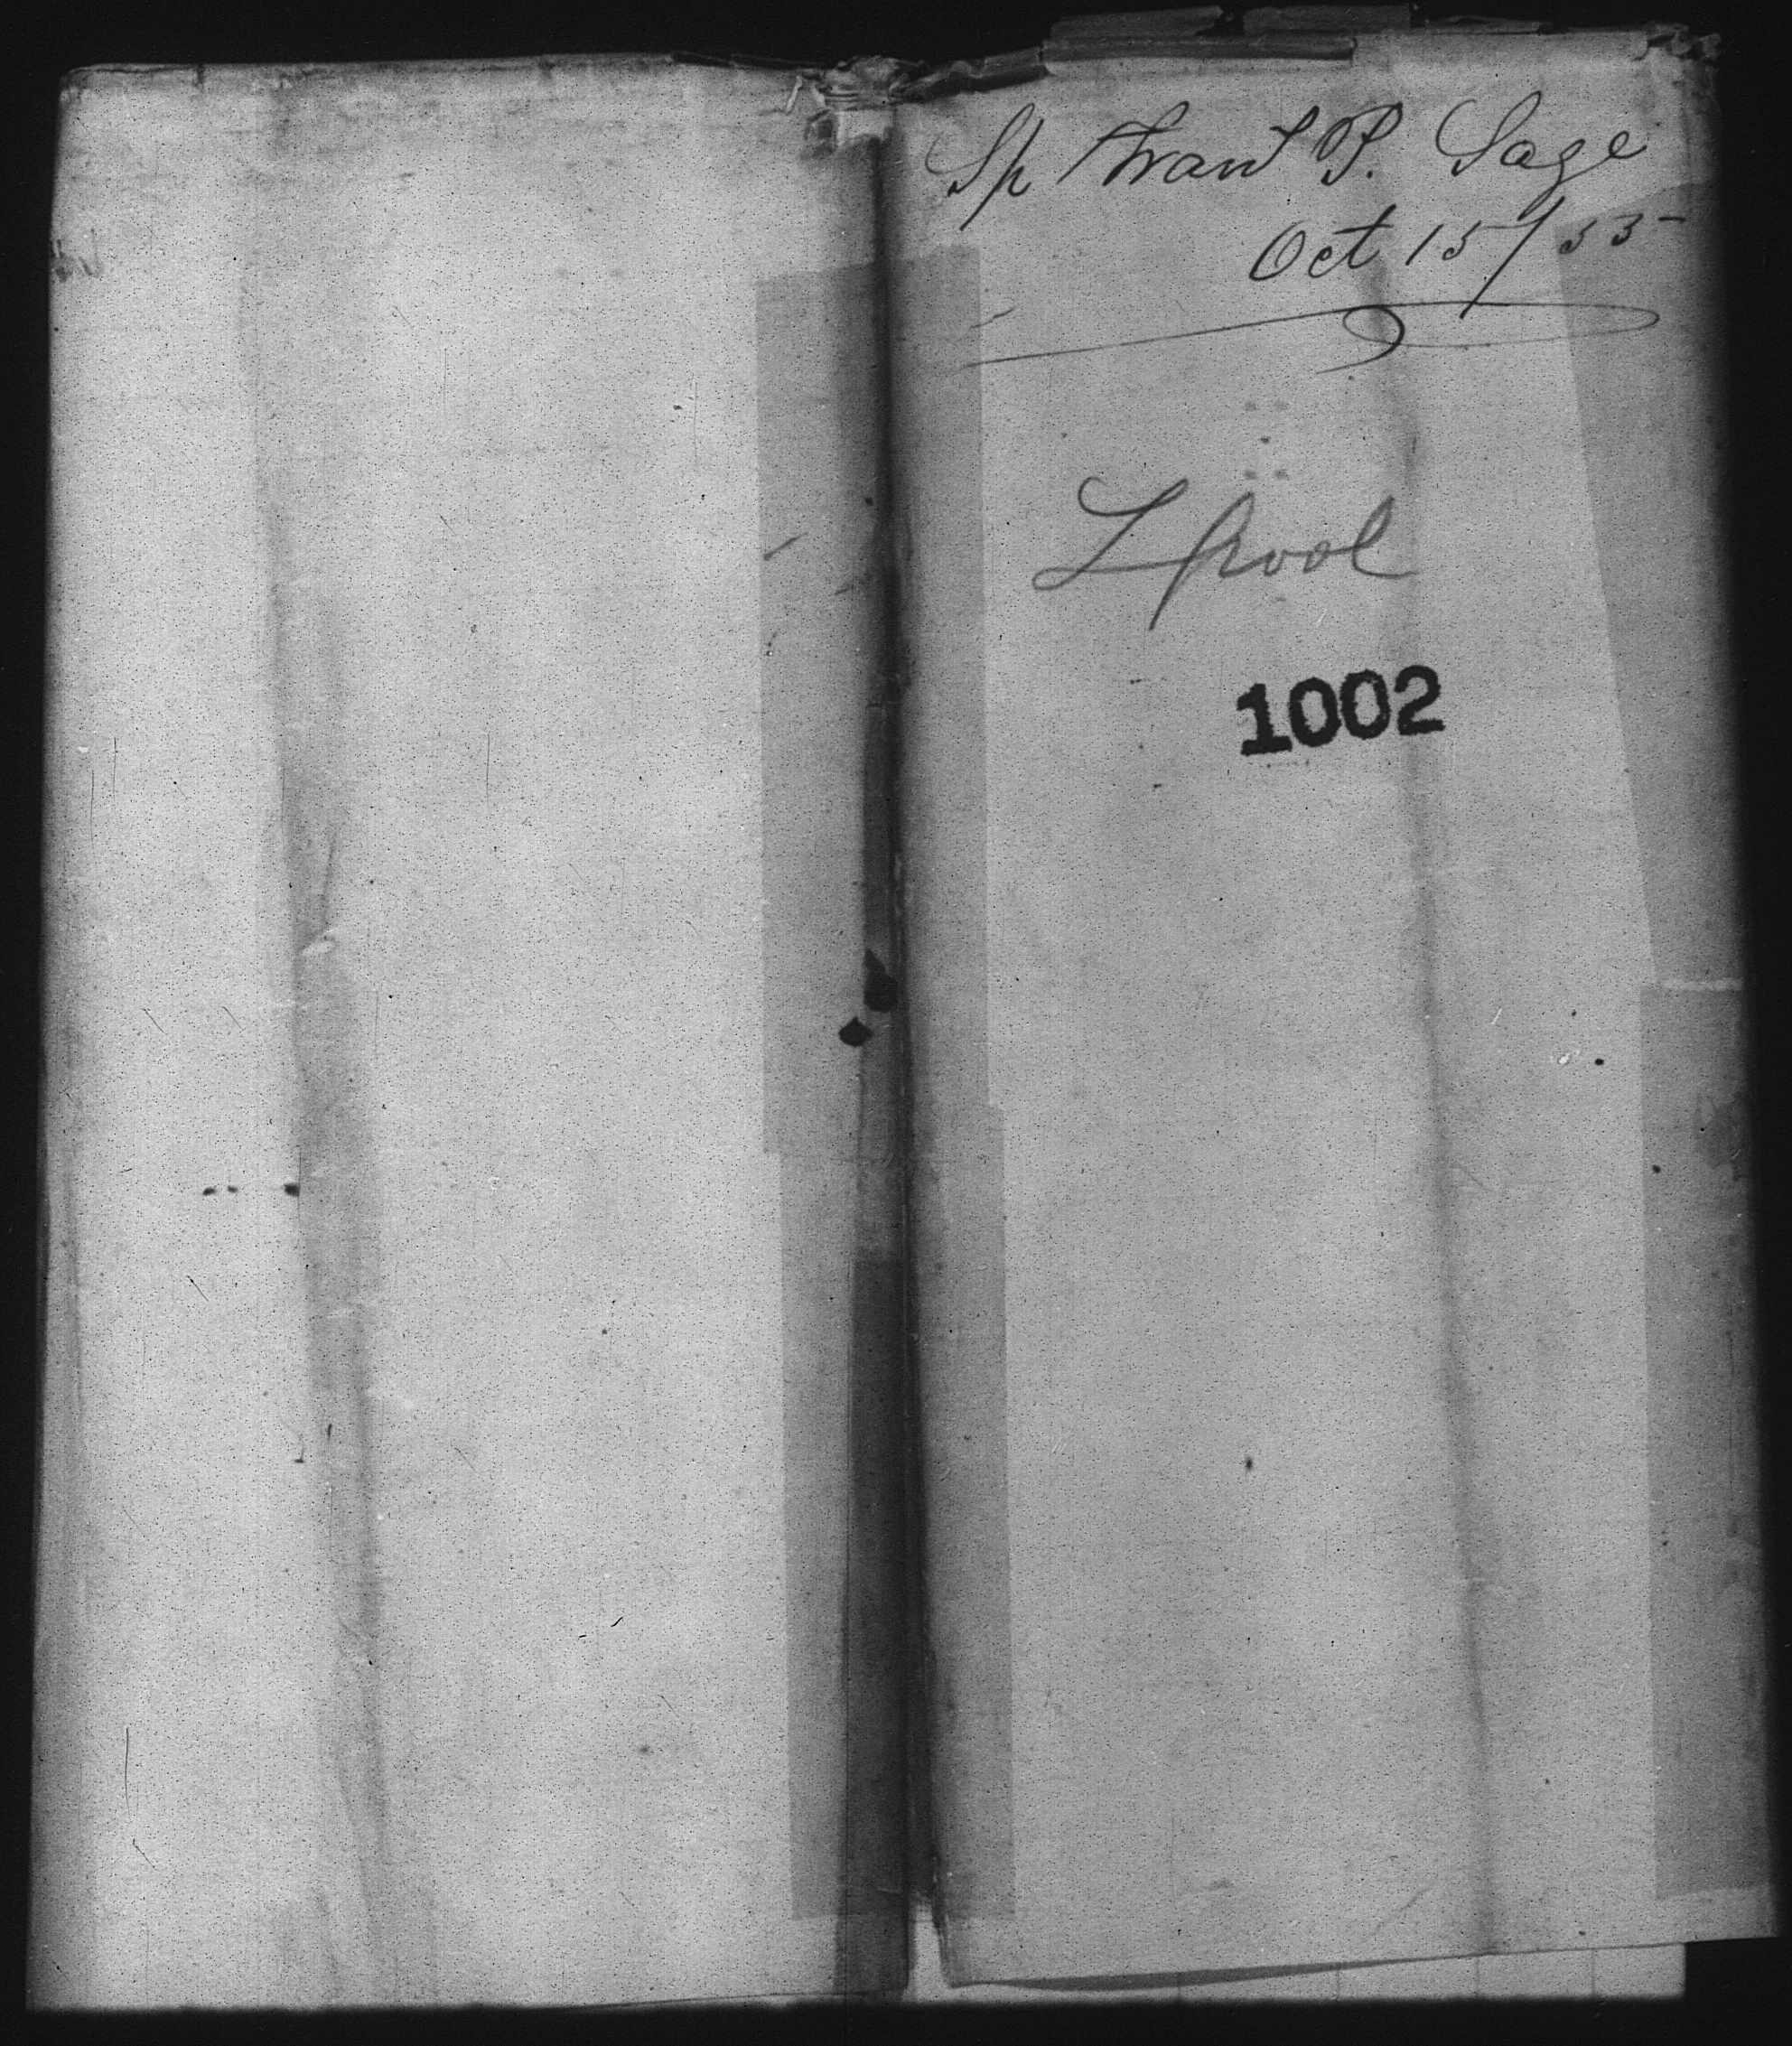 Sp Frant P. Sage
Oct 15/55
Lpool
1002